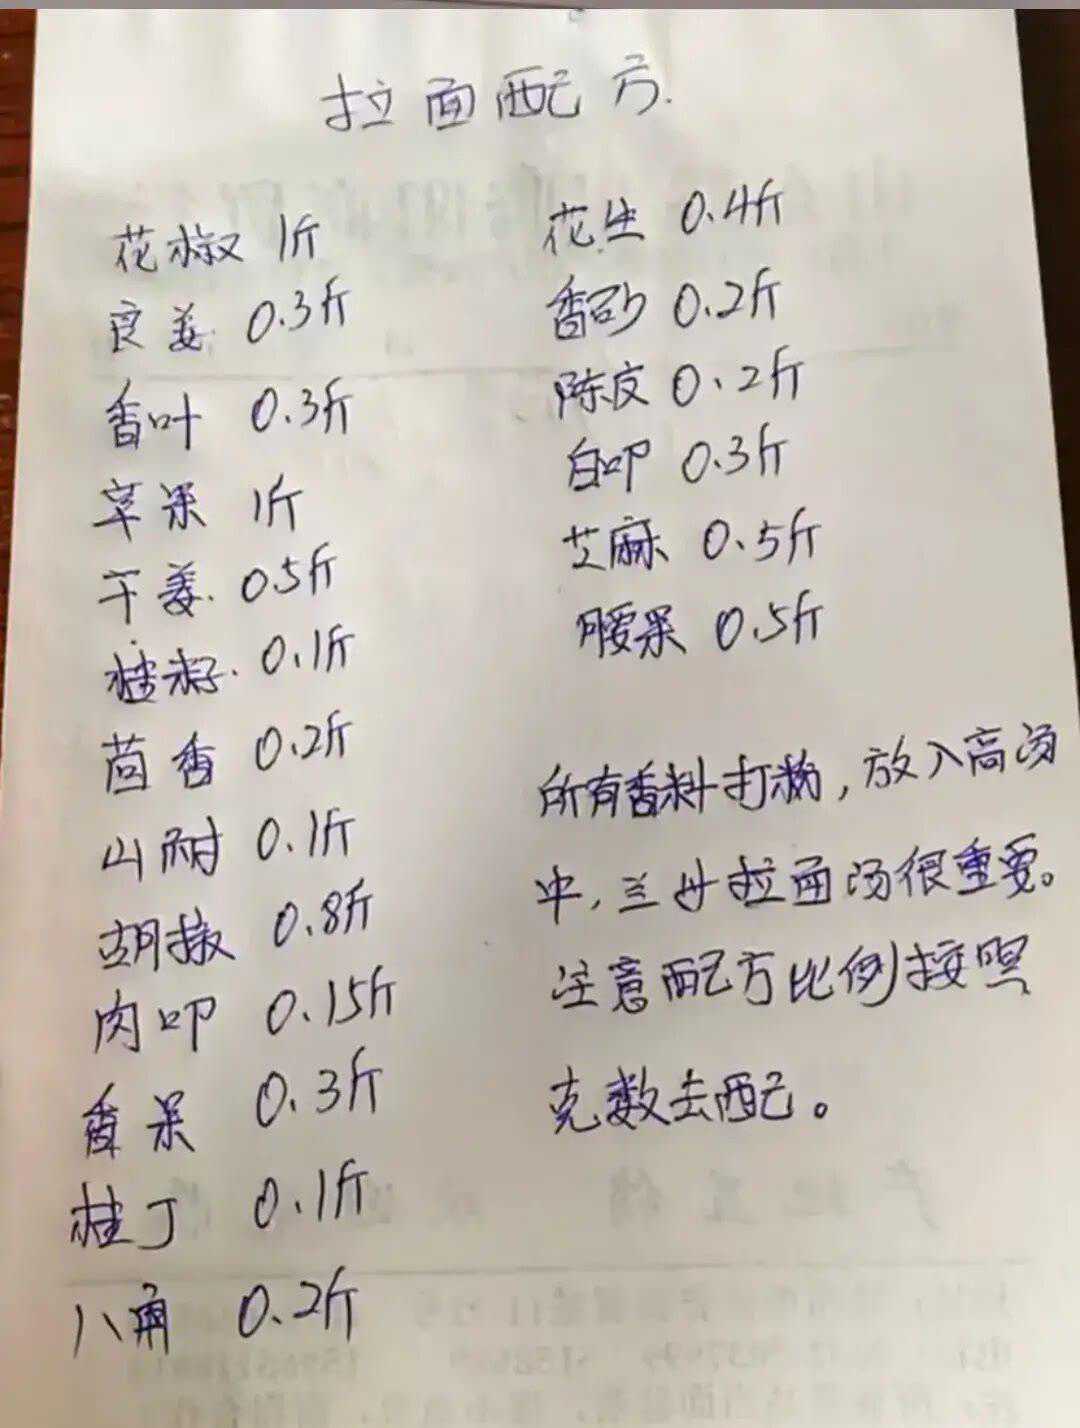 拉面配方.
花椒 1斤
良姜 0.3斤
香叶 0.3斤
草果 1斤
干姜. 0.5斤
0.1斤
茴香 0.2斤
山耐 0.1斤
胡椒 0.8斤
肉叩 0.15斤
香果 0.3斤
桂丁 0.1斤
八角 0.2斤
花生 0.4斤
香砂 0.2斤
陈皮 0.2斤
白叩 0.3斤
芝麻 0.5斤
腰果 0.5斤
所有香料打粉,放入高汤
中,兰州拉面汤很重要。
注意配方比例按照
克数去配。